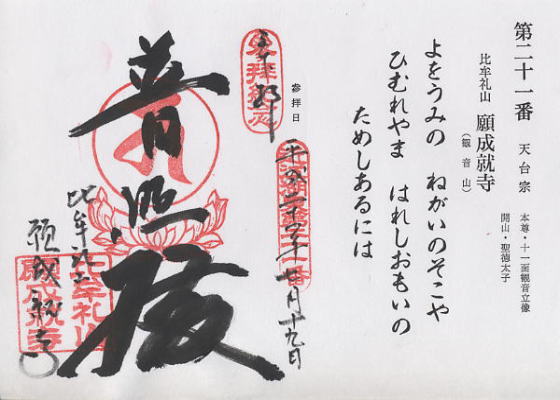 第二十一番 天台宗
本尊・十一面観音立像
開山・聖徳太子
比牟礼山 願成就寺
(観音山)
よをうみの ねがいのそこや
ひむれやま はれしおもいの
ためしあるには
参拝日
平成二十四年七月十九日
奉拝
普照殿
比牟礼山
願成就寺
比牟礼山
願成就寺